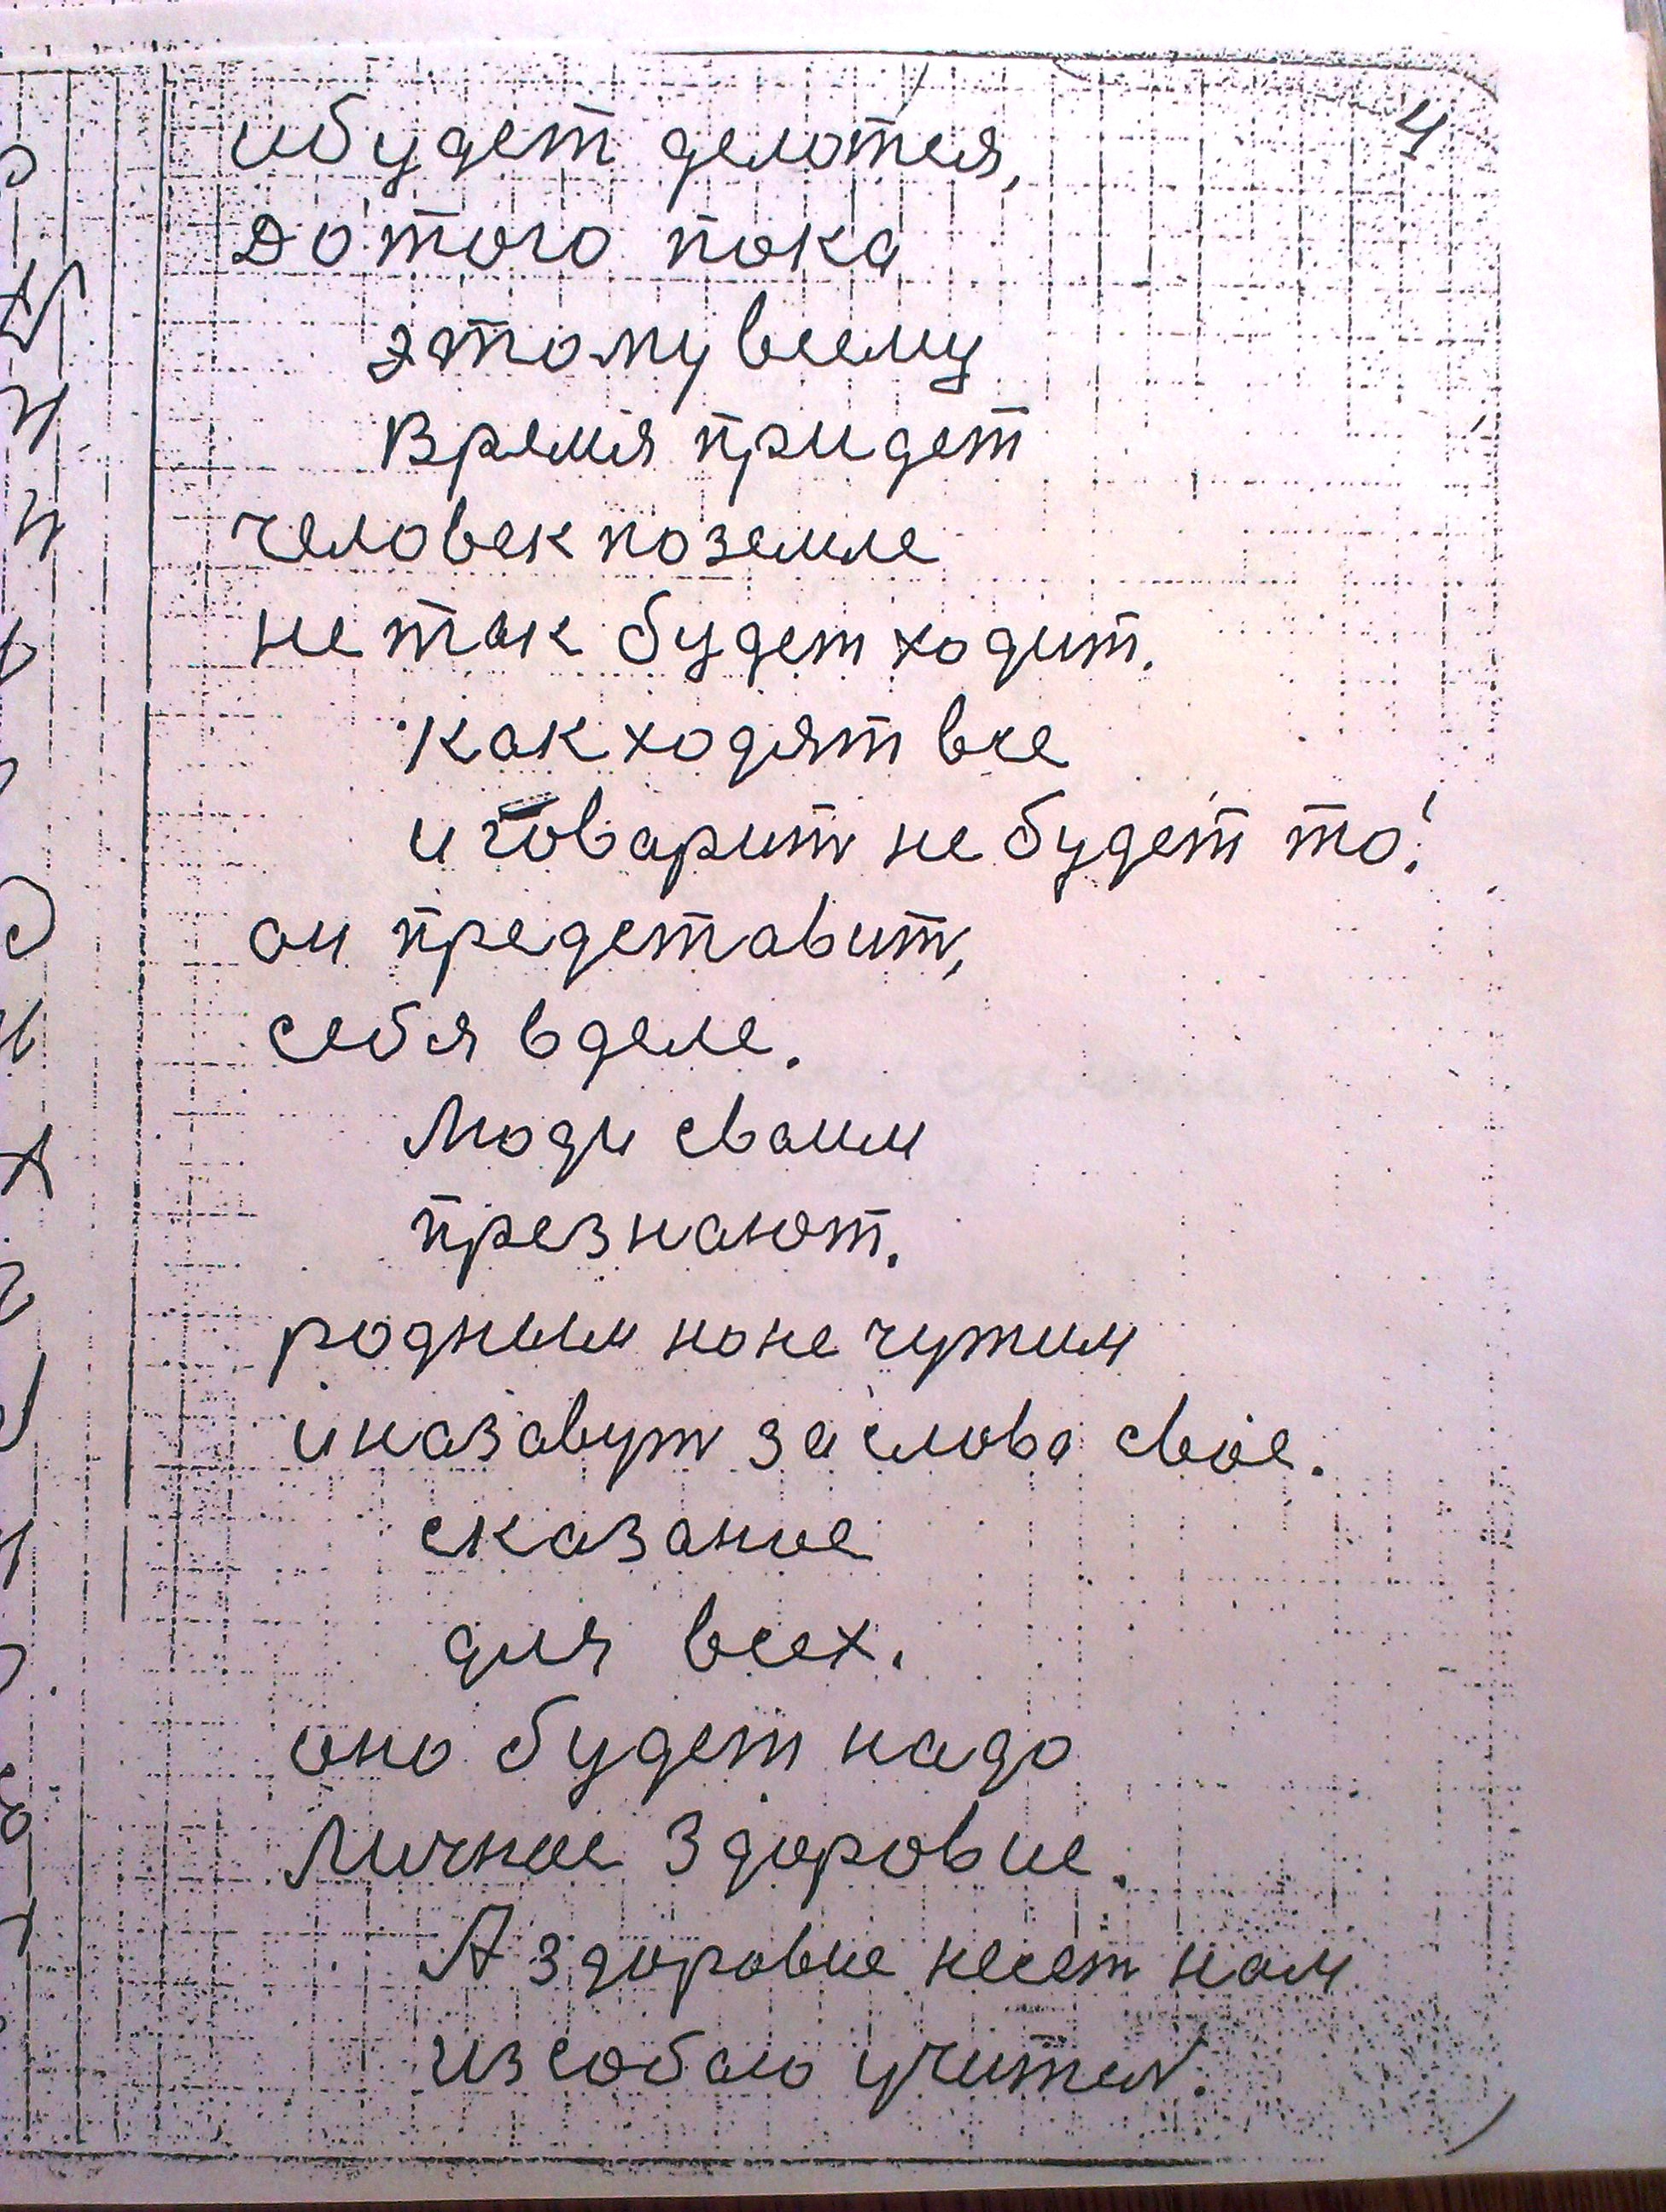 4
ибудет делотся,
до того пока
этому всему
Время придет
человек поземле
не так будет ходит.
как ходят все
и говарит не будет то!
он представит,
себя вделе.
Люди сваим
презнают.
родным ноне чужим
иназавут за слово свое.
сказание
для всех.
оно будет надо
Личное Здоровие.
А здоровие несет нам
изсобою учител.